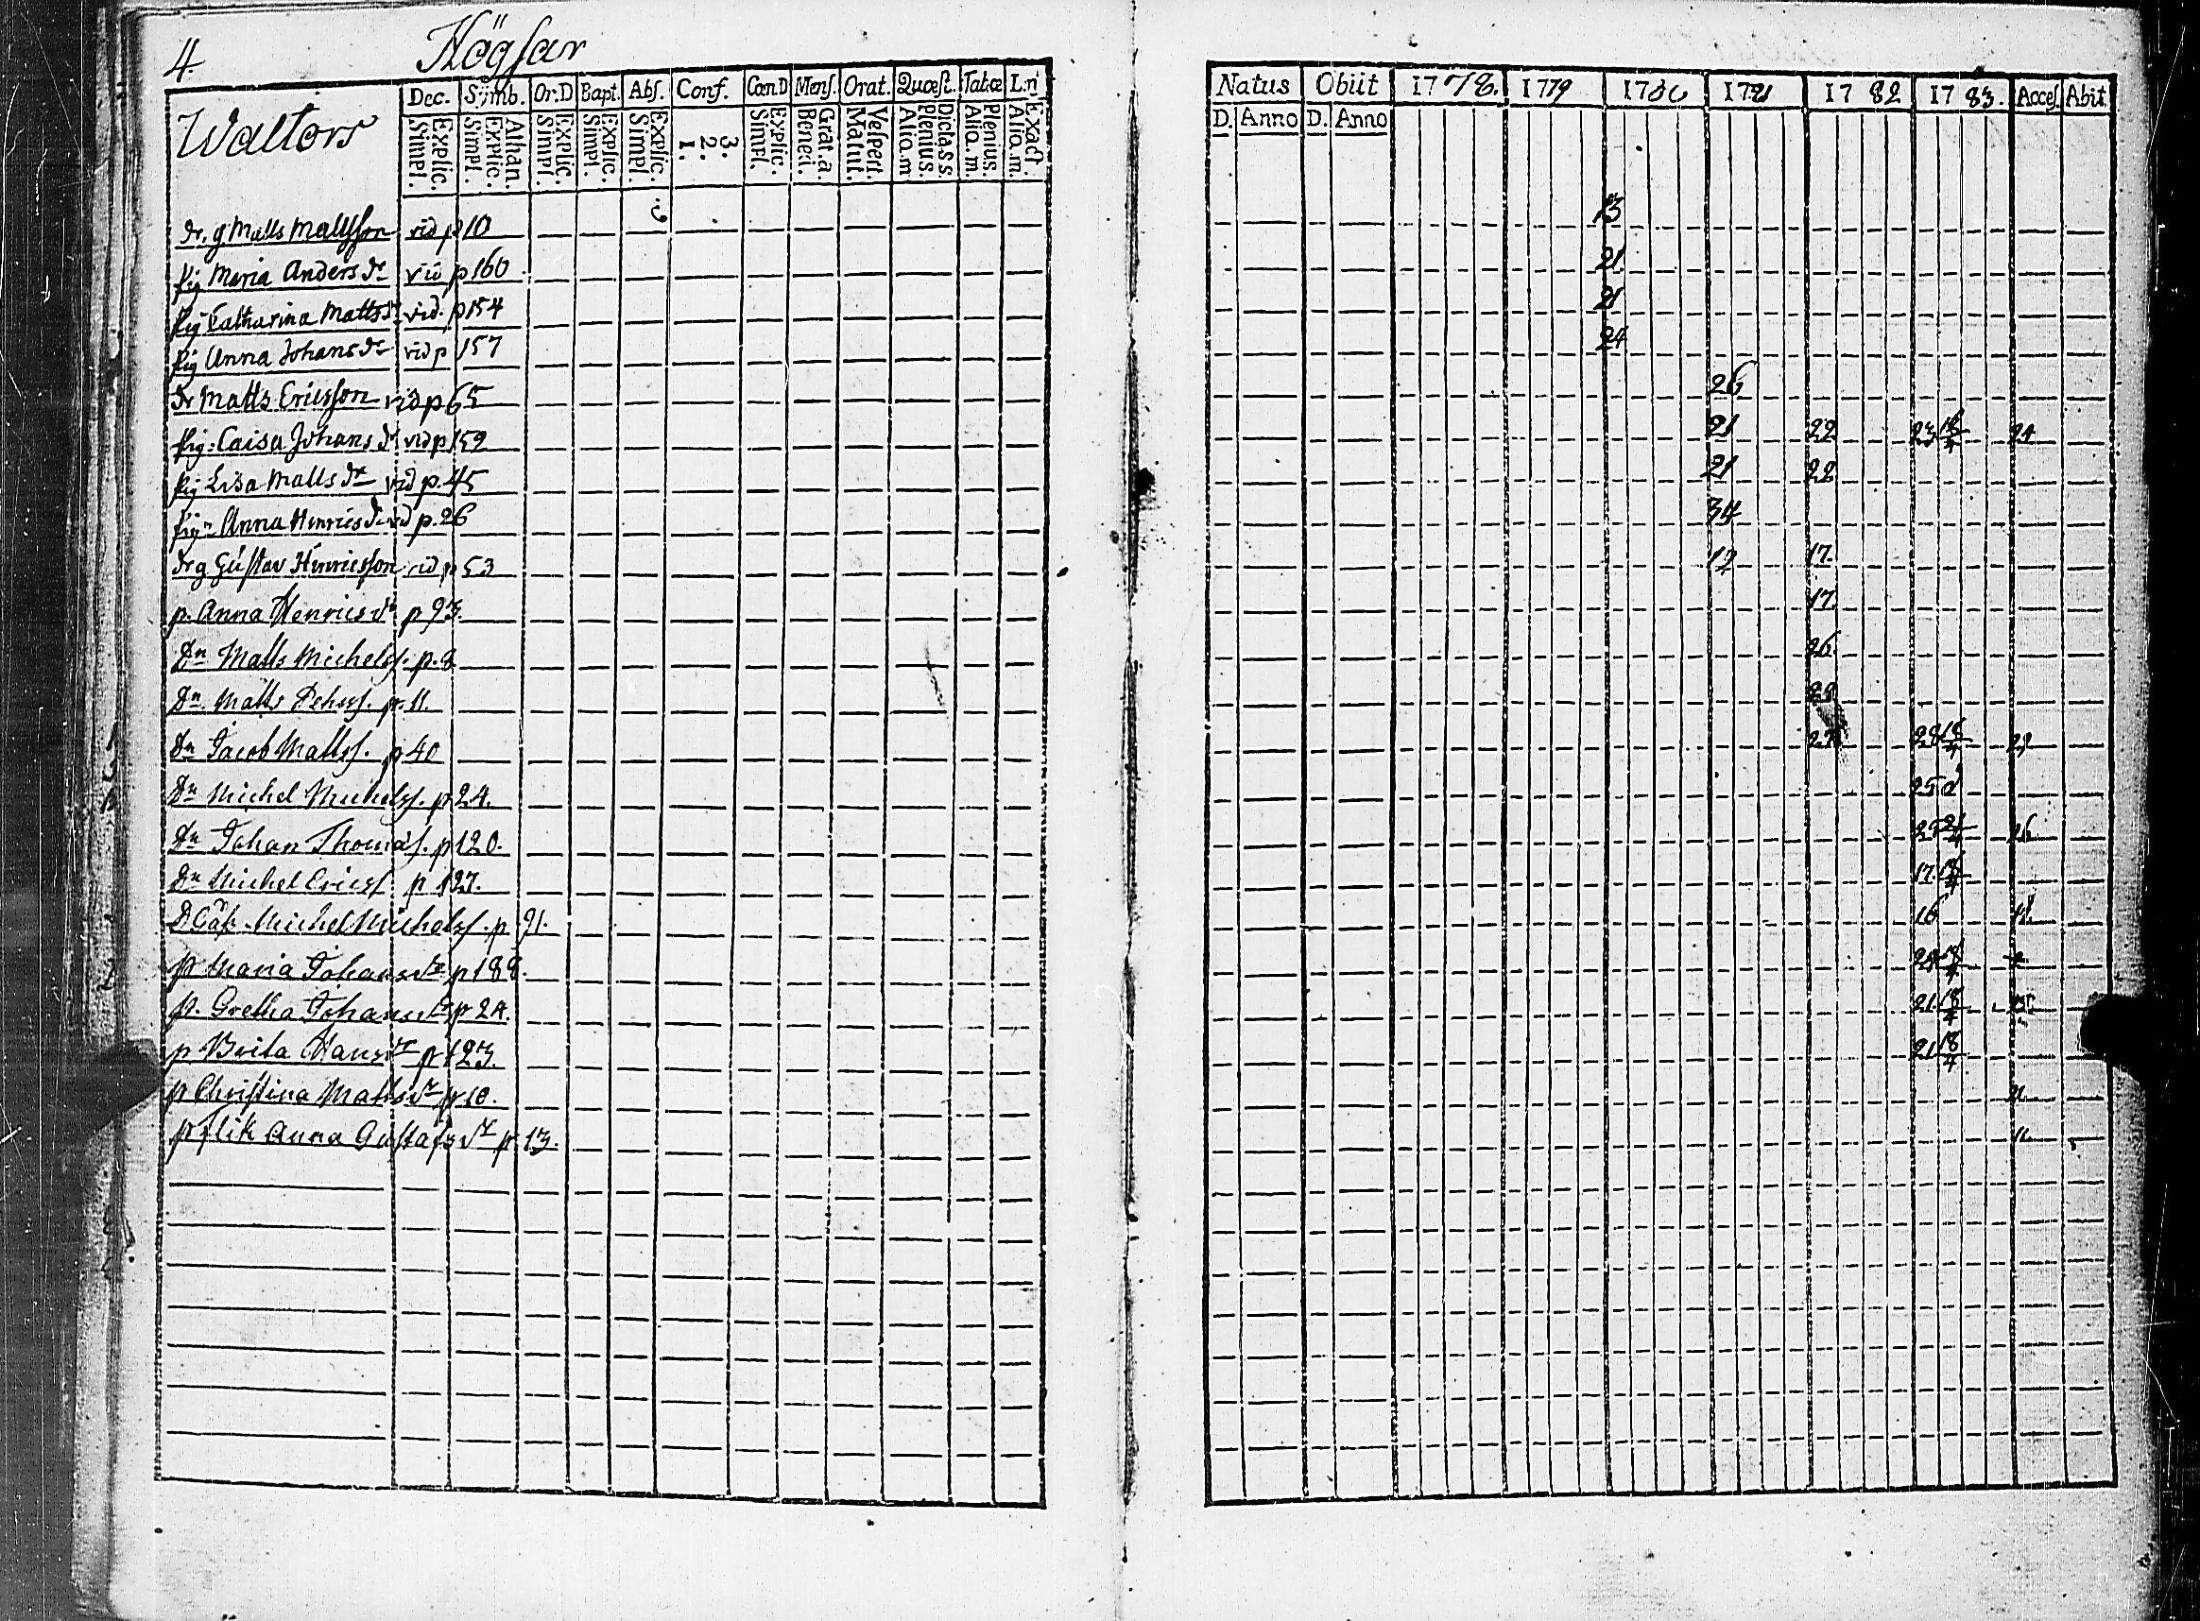 4. Högsar
Waltors
Dec. Symb. Or.D Bapt. Abs. Conf. Cœn.D Mens. Orat. Quæst. Tabæ L.n
Explic. Simpl. Athan. Explic. Simpl. Explic. Simpl. Explic. Simpl. Explic. Simpl. 3. 2. 1. Explic. Simpl. Grat. a Bened. Vespert. Matut. Dictass. Plenius. Aliq. m Plenius. Aliq. m. Exact Aliq. m.
Natus Obiit 1778. 1779 1780 1781 1782 1783. Acces. Abit
D. Anno D. Anno
dr. g Matts Mattsson vid p 10 13
pig Maria Anders dr vid p 160 21
pig Catharina Matts dr vid. p 154 21
pig Anna Johans dr vid p 157 24
dr Matts Ericsson vid p 65 26
pig: Caisa Johans dr vid p 159 21 22 23 18/4 24
pig Lisa Matts dr vid p. 45 21 22
pig Anna Henrics dr vid p. 26 34
dr g Gustav Hinricsson vid p 53 12 17.
p. Anna Henrics dr p 93. 17.
Dn Matts Michelss. p. 8 26.
Dn. Matts Pehrss. p. 11. 28
Dn Jacob Mattss. p 40 27 28 18/4
Dn Michel Michelss. p 24. 25
Dn Johan Thomas. p 120. 25 21/4 26
Dn Michel Ericss. p 127. 17. 18/4
Michel Michelss. p 91. 16
p Maria Johans dr p 188. 24 18/4
p. Gretha Johans dr p 24. 21. 18/4
p Brita Hans dr p 123. 21 18/4
p Christina Matts dr p 10.
p flik Anna Gustafs dr p 13.